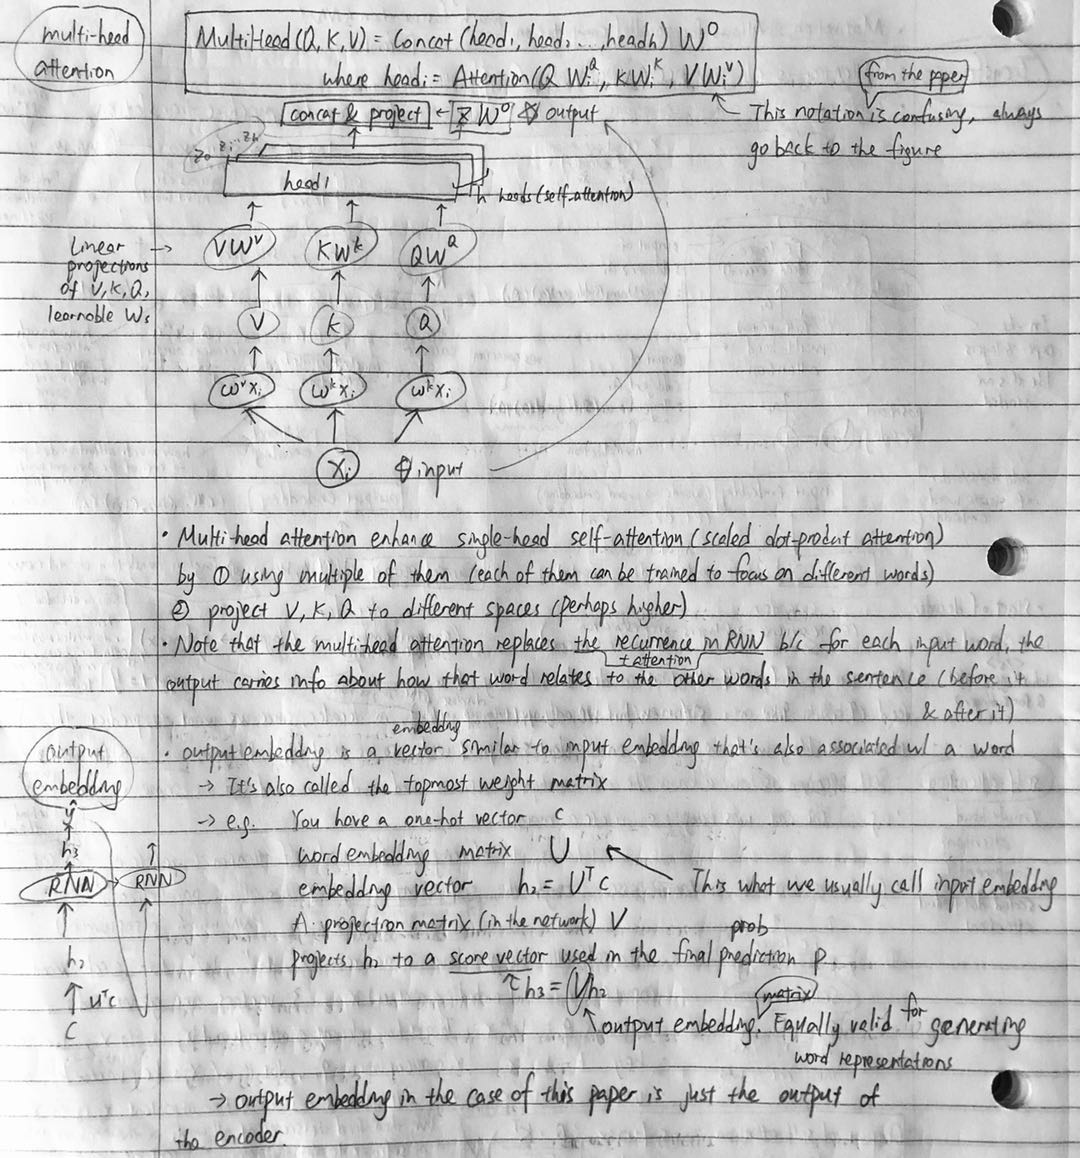 multi-head
attention
MultiHead(Q, K, V) = Concat (head₁, head₂ ..., headh) W^O
where headᵢ = Attention(Q Wᵢ^Q, K Wᵢ^K, V Wᵢ^V)
from the paper
This notation is confusing, always
go back to the figure
concat & project ← Z W^O output
Z₀ Zᵢ .. Zₕ
head 1
h heads (self-attention)
Linear →
projections
of V, K, Q,
learnable Ws
VW^V KW^K QW^Q
V K Q
W^V Xᵢ W^K Xᵢ W^K Xᵢ
Xᵢ input
• Multi-head attention enhance single-head self-attention (scaled dot-product attention)
by ① using multiple of them (each of them can be trained to focus on different words)
② project V, K, Q to different spaces (perhaps higher)
• Note that the multihead attention replaces the recurrence in RNN b/c for each input word, the
+ attention
output carries info about how that word relates to the other words in the sentence (before it
& after it)
output
embedding
embedding
• output embedding is a vector similar to input embedding that's also associated w/ a word
→ It's also called the topmost weight matrix
→ e.g. You have a one-hot vector c
word embedding matrix U
embedding vector h₂ = U^T c
This what we usually call input embedding
A projection matrix (in the network) V
prob
projects h₂ to a score vector used in the final prediction p.
↑ h₃ = V h₂
matrix
↑ output embedding. Equally valid for generating
word representations
y
h₃
RNN → RNN
h₂
↑ U^T c
C
→ output embedding in the case of this paper is just the output of
the encoder.